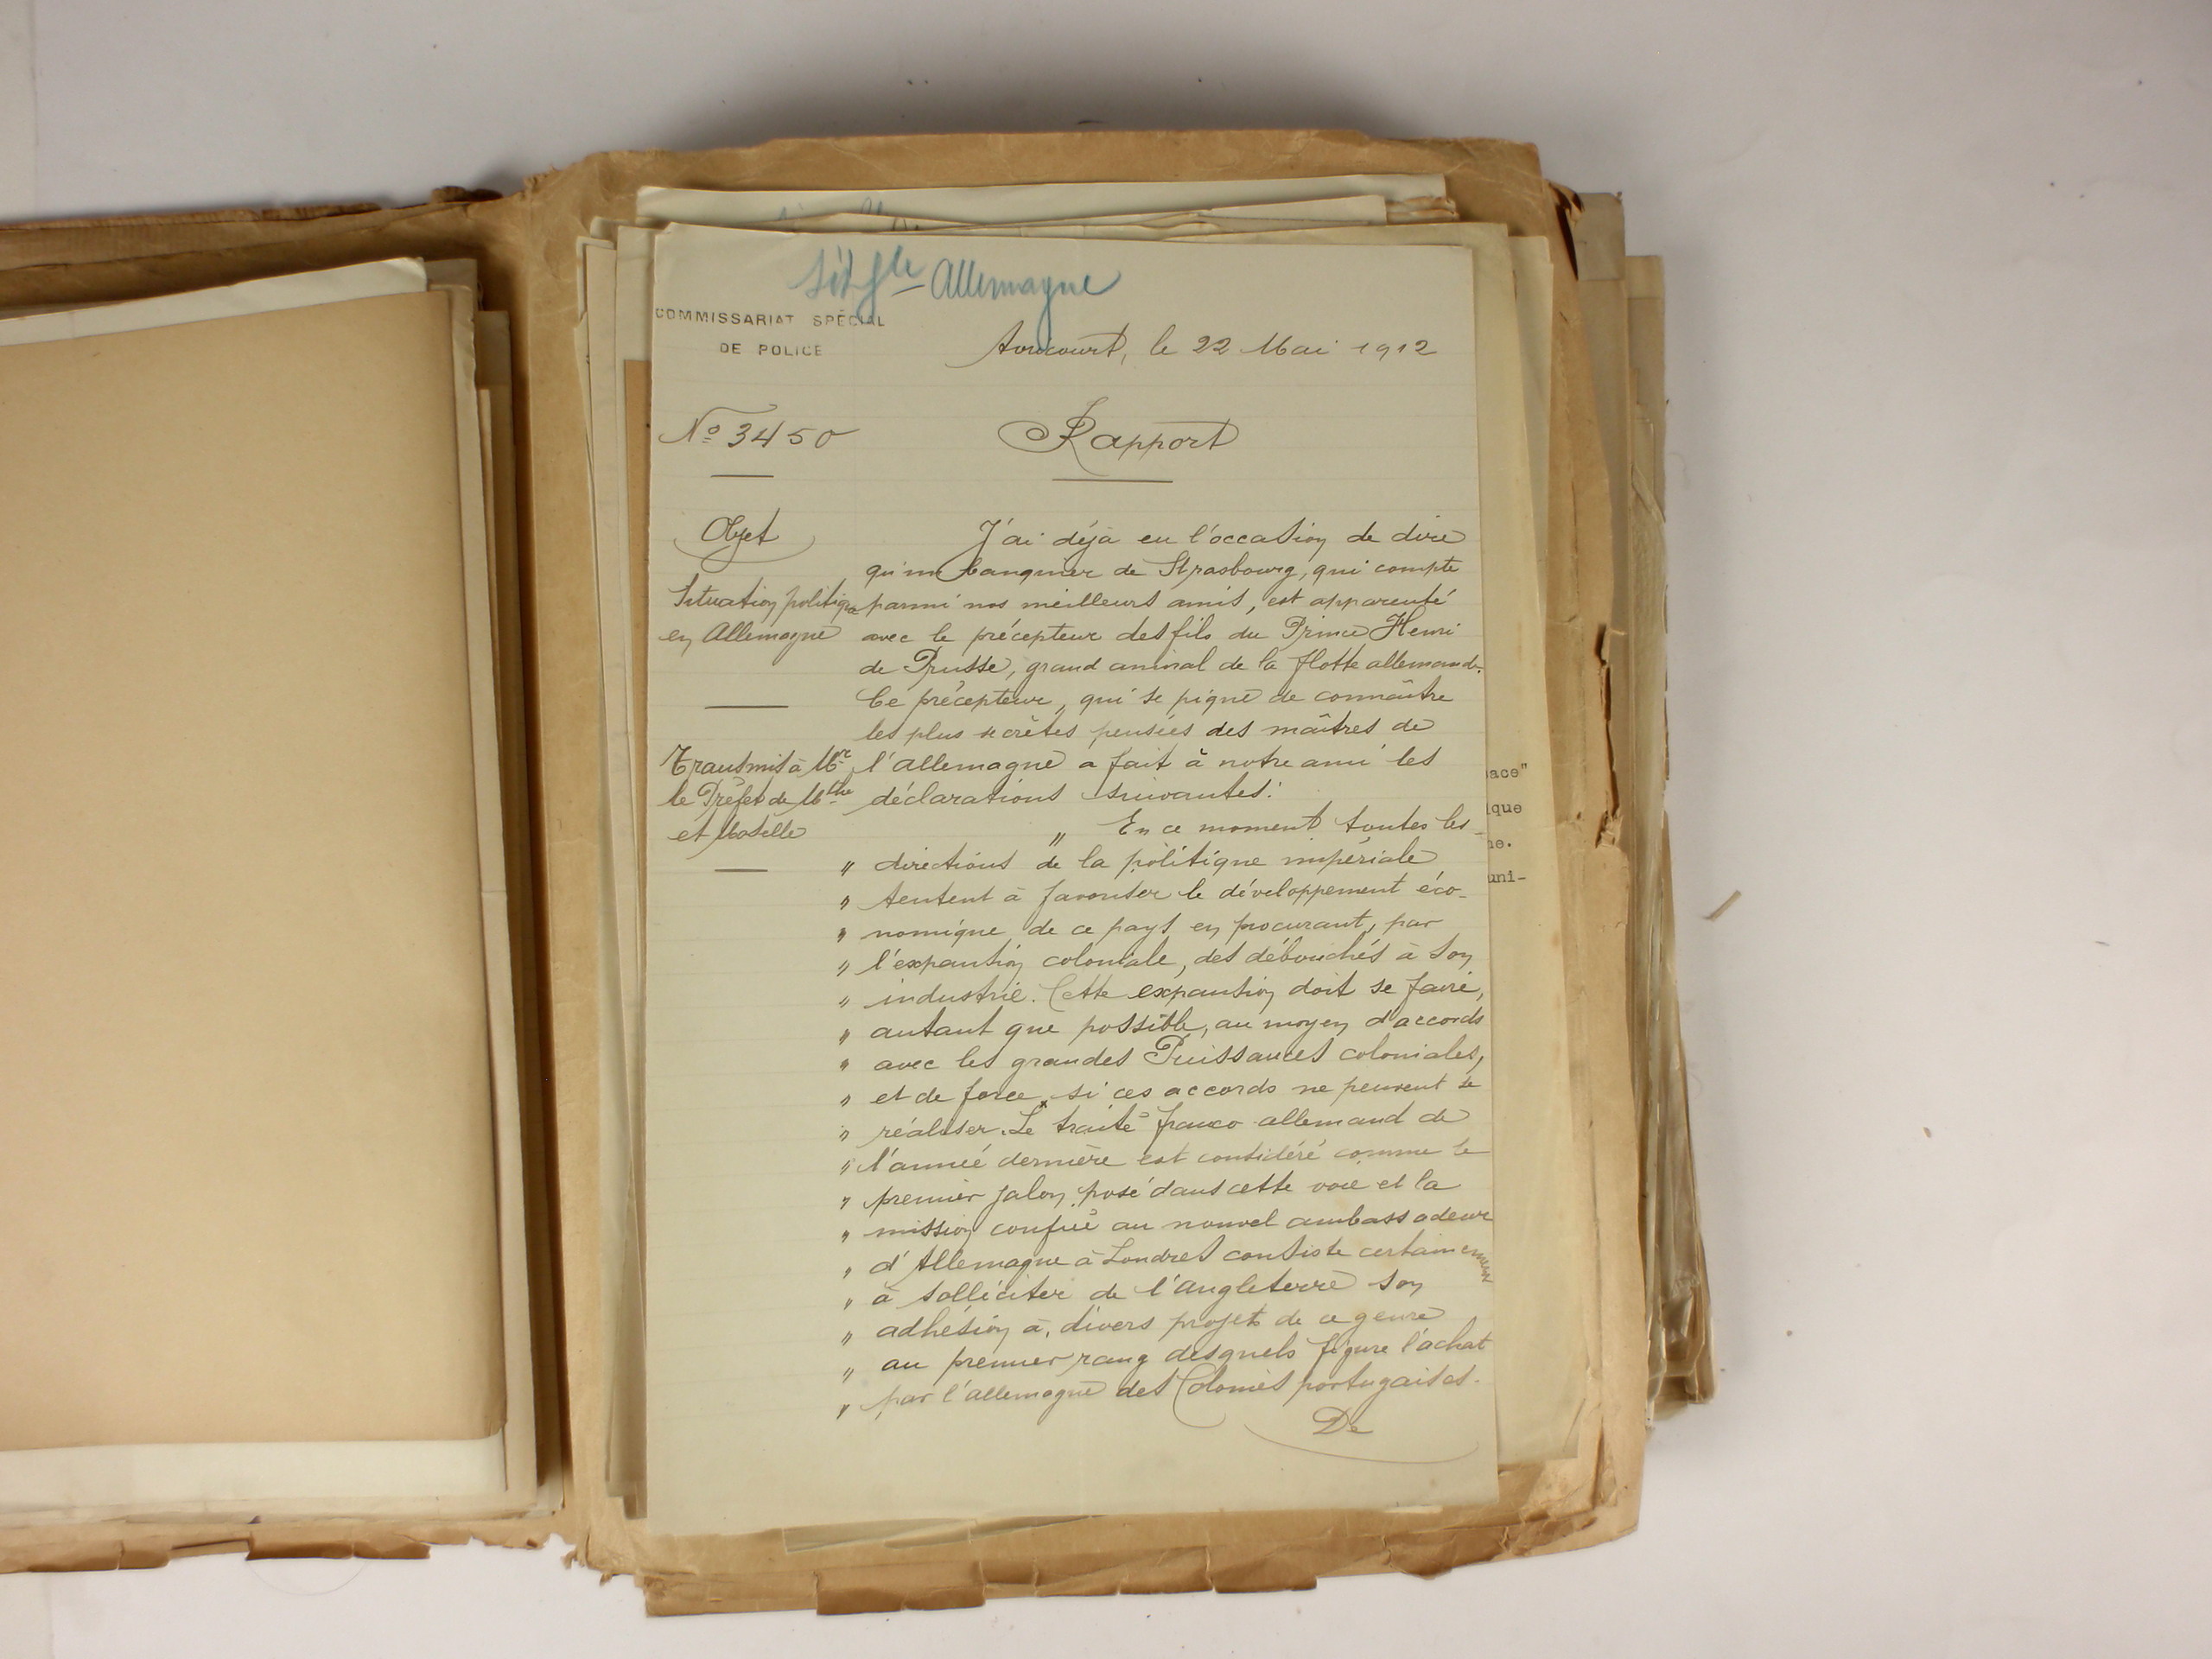 Sit gle Allemagne
COMMISSARIAT SPÉCIAL
DE POLICE
Avricourt, le 22 Mai 1912
No 3450
Rapport
Objet
Situation politique
en Allemagne
Transmis à Mr
le Préfet de Mthe
et Moselle
J'ai déjà eu l'occasion de dire
qu'un banquier de Strasbourg, qui compte
parmi nos meilleurs amis, est apparenté
avec le précepteur des fils du Prince Henri
de Prusse, grand amiral de la flotte allemande.
Ce précepteur, qui se pique de connaître
les plus secrètes pensées des maîtres de
l'Allemagne a fait à notre ami les
déclarations suivantes:
" En ce moment toutes les
" directions de la politique impériale
" tentent à favoriser le développement éco-
" nomique de ce pays en procurant, par
" l'expansion coloniale, des débouchés à son
" industrie. Cette expansion doit se faire,
" autant que possible, au moyen d'accords
" avec les grandes Puissances coloniales,
" et de force si ces accords ne peuvent se
" réaliser. Le traité franco-allemand de
" l'année dernière est considéré comme le
" premier jalon posé dans cette voie et la
" mission confiée au nouvel ambassadeur
" d'Allemagne à Londres consiste certainement
" à solliciter de l'Angleterre son
" adhésion à divers projets de ce genre
" au premier rang desquels figure l'achat
" par l'Allemagne des Colonies portugaises.
De
ace"
ique
ne.
uni-